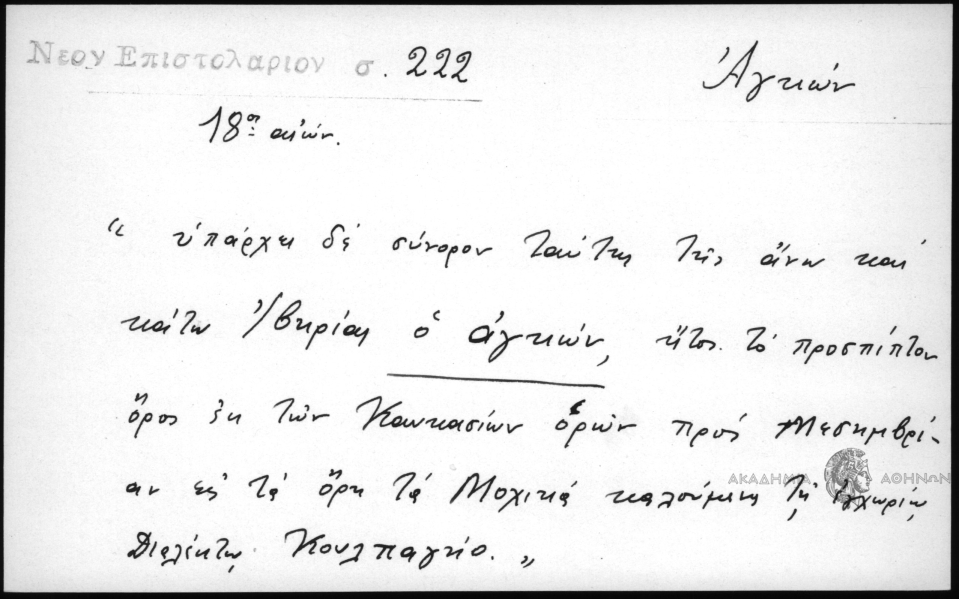 Νεον Επιστολαριον σ. 222
Ἀγκών
18ος αἰών.
“ ὑπάρχει δέ σύνορον ταύτης τῆς ἄνω καί
κάτω Ἰβηρίας ὁ ἀγκών, ἤτοι τό προσπίπτον
ὄρος ἐκ τῶν Καυκασίων ὁρῶν πρός Μεσημβρί-
αν εἰς τά ὄρη τά Μοχικά καλούμενα τῇ ἐγχωρίῳ
Διαλέκτῳ Κουλπαγκιο. „
ΑΚΑΔΗΜΙΑ ΑΘΗΝΩΝ